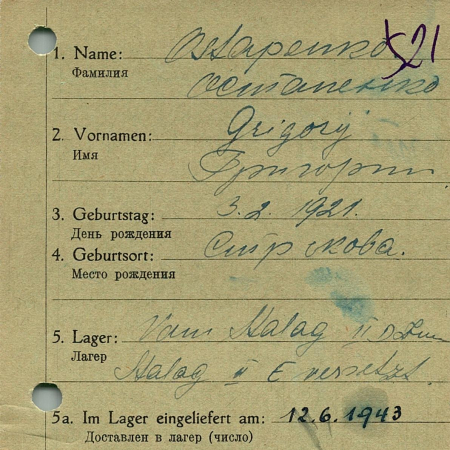 1. Name: Ostapenko 521
Фамилия Остапенко
2. Vornamen: Grigorij
Имя Григорий
3. Geburtstag: 3.2.1921.
День рождения
4. Geburtsort:
Место рождения
5. Lager: Vom Stalag II D zum
Лагер Stalag II E versetzt.
5a. Im Lager eingeliefert am: 12.6.1943
Доставлен в лагер (число)